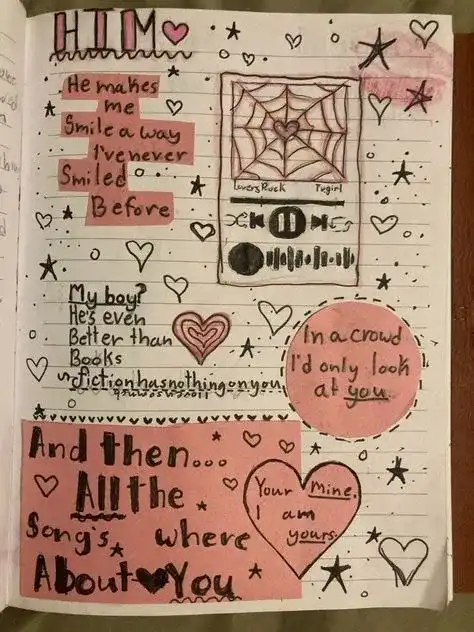 HIM
He makes
me
Smile a way
I've never
Smiled
Before
LoversRock Tvgirl
My boy?
He's even
Better than
Books
fictionhasnothingonyou
In a crowd
I'd only look
at you.
And then...
All the
Song's where
About You
Your Mine.
I am
yours.